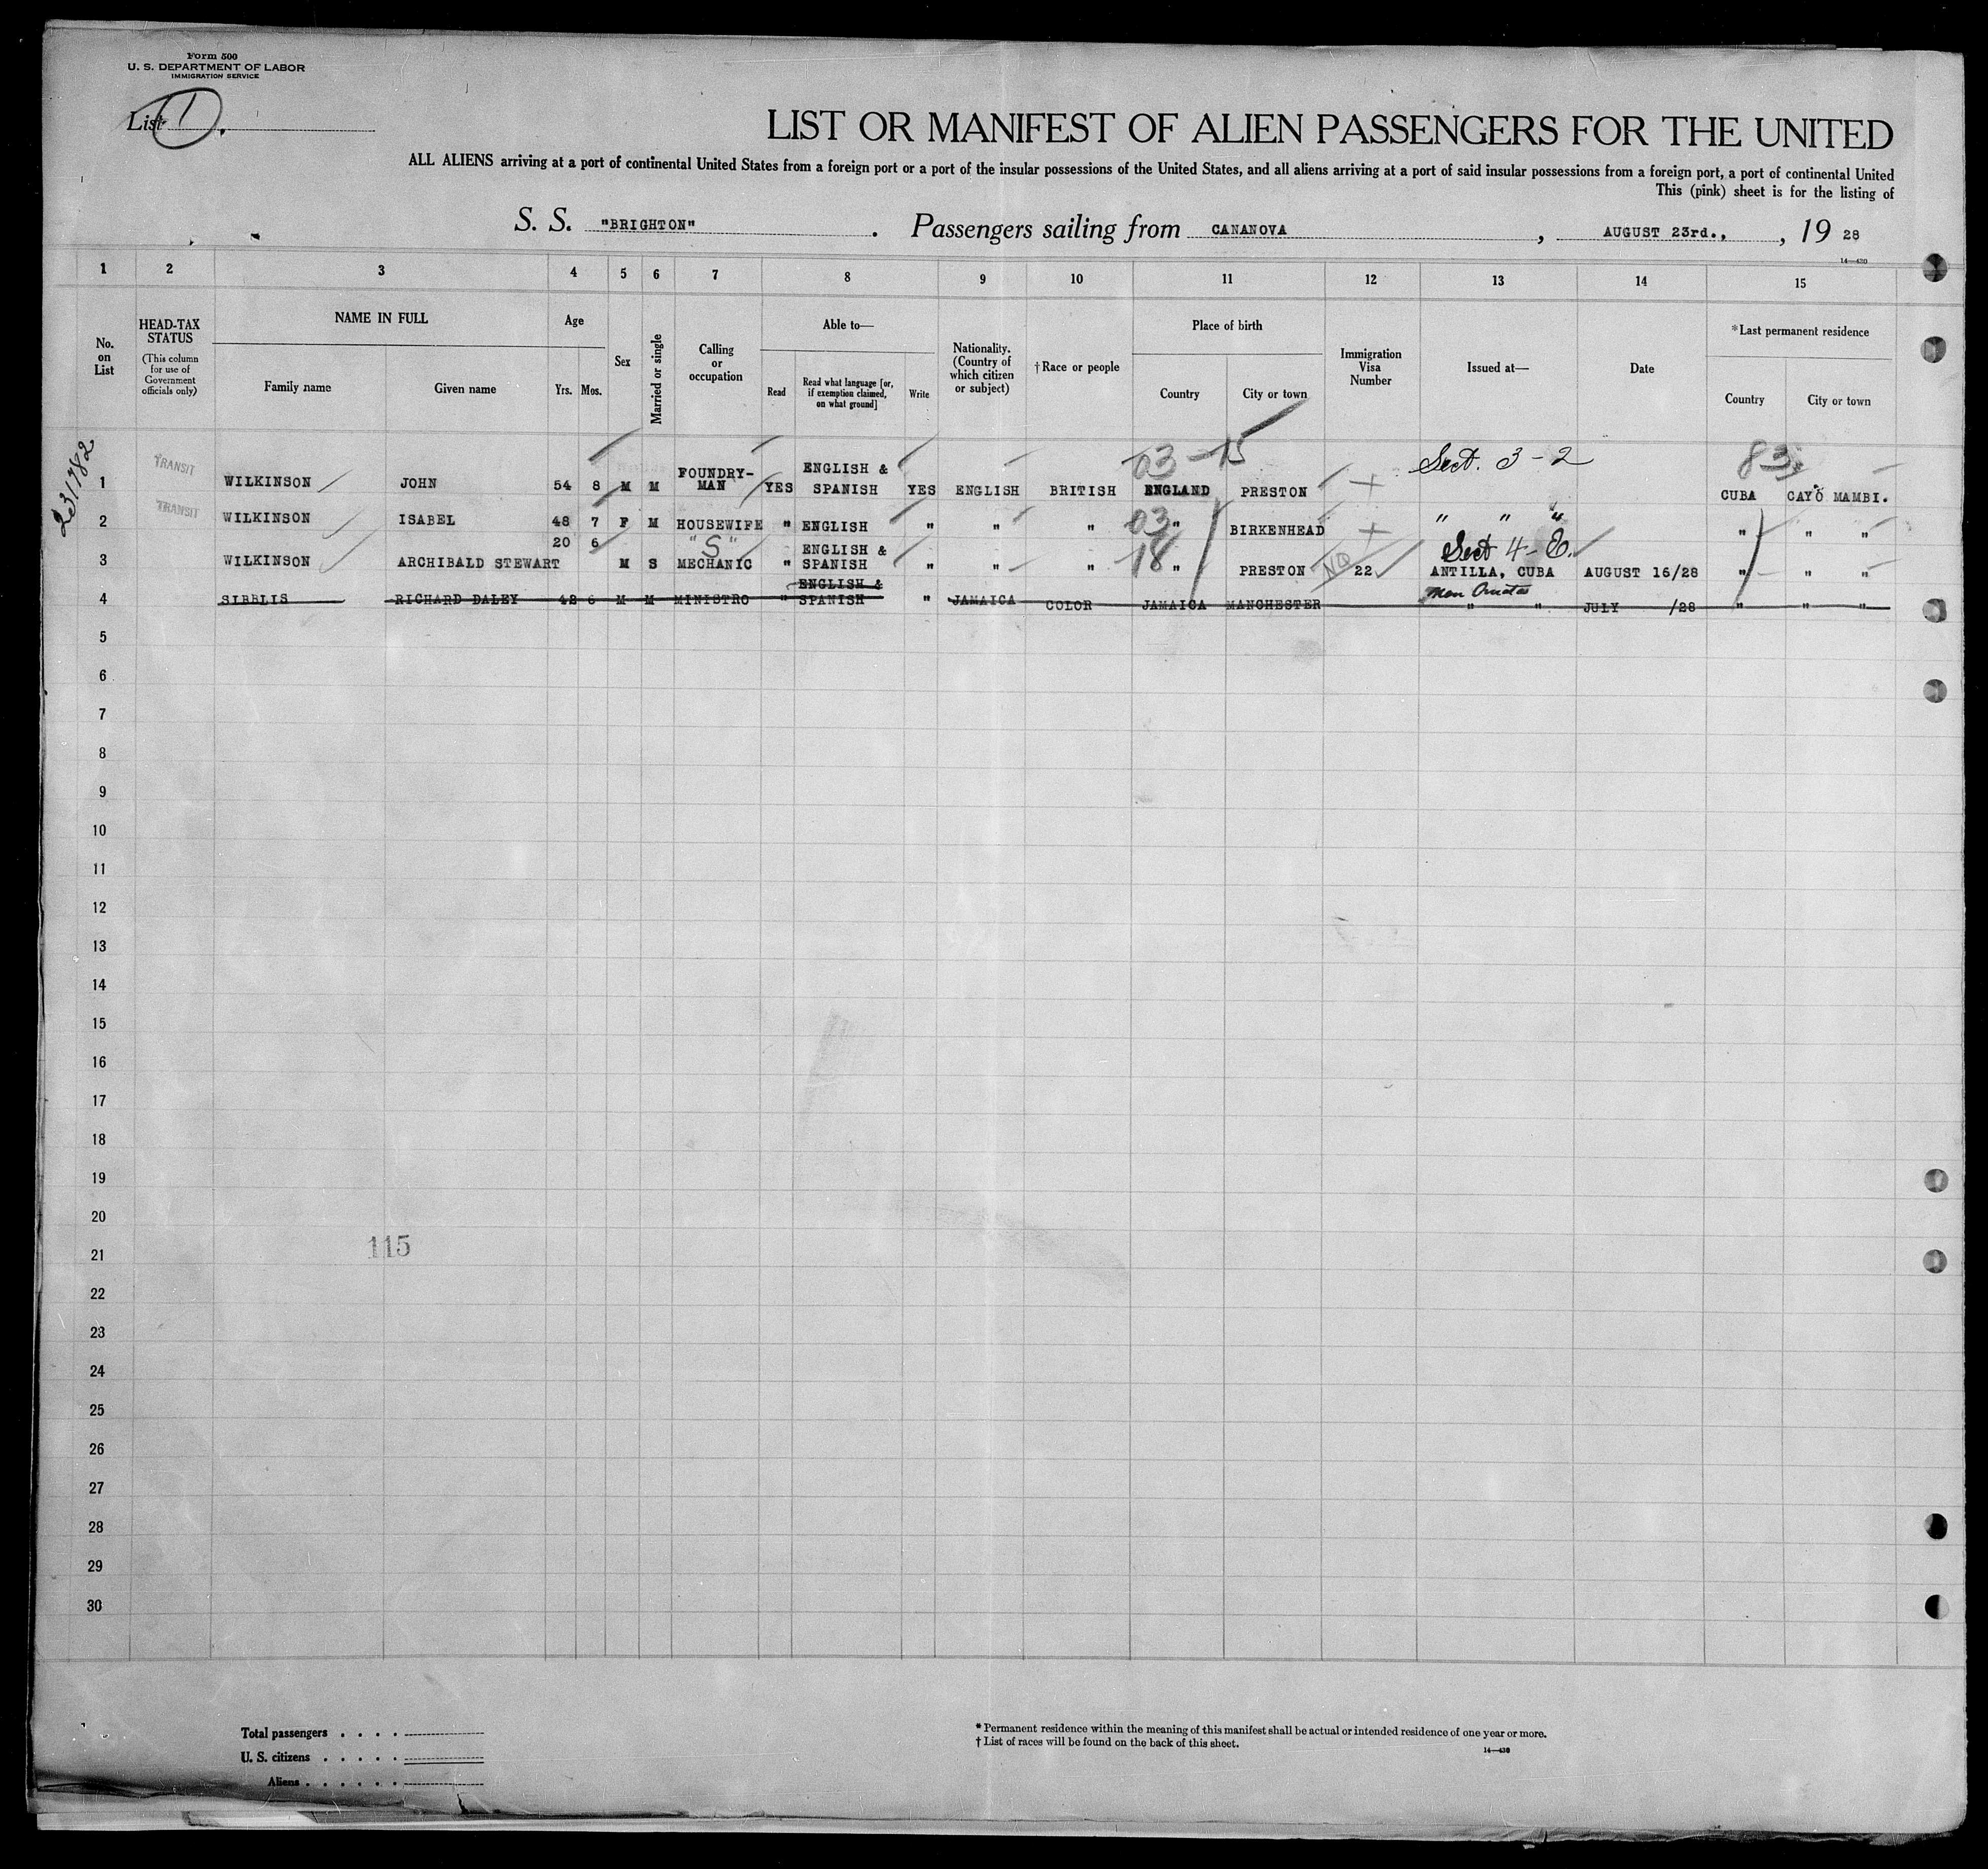 Form 500
U. S. DEPARTMENT OF LABOR
IMMIGRATION SERVICE
List 1
LIST OR MANIFEST OF ALIEN PASSENGERS FOR THE UNITED
ALL ALIENS arriving at a port of continental United States from a foreign port or a port of the insular possessions of the United States, and all aliens arriving at a port of said insular possessions from a foreign port, a port of continental United
This (pink) sheet is for the listing of
S. S. "BRIGHTON" . Passengers sailing from CANANOVA , AUGUST 23rd., , 19 28
14—420
1 2 3 4 5 6 7 8 9 10 11 12 13 14 15
No. on List
HEAD-TAX STATUS
(This column for use of Government officials only)
NAME IN FULL
Family name
Given name
Age
Yrs. Mos.
Sex
Married or single
Calling or occupation
Able to—
Read
Read what language [or, if exemption claimed, on what ground]
Write
Nationality. (Country of which citizen or subject)
†Race or people
Place of birth
Country
City or town
Immigration Visa Number
Issued at—
Date
*Last permanent residence
Country
City or town
231782
03 - 15 Sect. 3 - 2 83
1 TRANSIT WILKINSON JOHN 54 8 M M FOUNDRY-MAN YES ENGLISH & SPANISH YES ENGLISH BRITISH ENGLAND PRESTON CUBA CAYO MAMBI.
2 TRANSIT WILKINSON ISABEL 48 7 F M HOUSEWIFE " ENGLISH " " " 03 " BIRKENHEAD " " " " " "
"S" 18 NQ Sect 4-E.
3 WILKINSON ARCHIBALD STEWART 20 6 M S MECHANIC " ENGLISH & SPANISH " " " " PRESTON 22 ANTILLA, CUBA AUGUST 16/28 " " "
4 SIBBLIS RICHARD DALEY 42 6 M M MINISTRO " ENGLISH & SPANISH " JAMAICA COLOR JAMAICA MANCHESTER " " JULY /28 " " "
5
6
7
8
9
10
11
12
13
14
15
16
17
18
19
20
21
115
22
23
24
25
26
27
28
29
30
Total passengers . . . .
U. S. citizens . . . . .
Aliens . . . . . .
* Permanent residence within the meaning of this manifest shall be actual or intended residence of one year or more.
† List of races will be found on the back of this sheet.
14—430